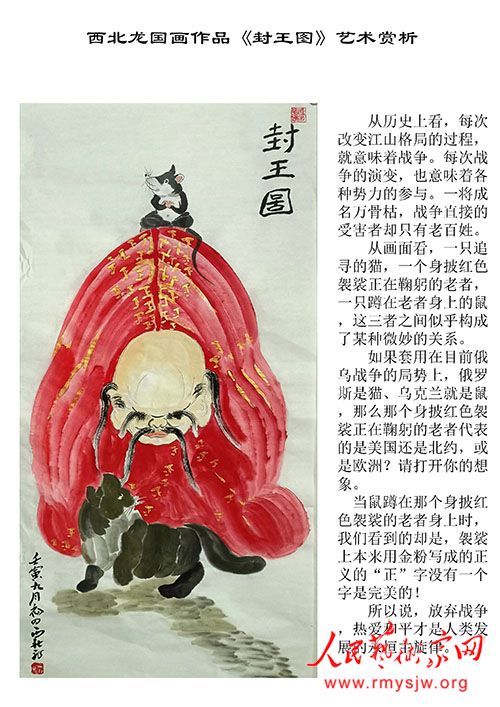 西北龙国画作品《封王图》艺术赏析
封王图
从历史上看，每次
改变江山格局的过程，
就意味着战争。每次战
争的演变，也意味着各
种势力的参与。一将成
名万骨枯，战争直接的
受害者却只有老百姓。
从画面看，一只追
寻的猫，一个身披红色
袈裟正在鞠躬的老者，
一只蹲在老者身上的鼠
，这三者之间似乎构成
了某种微妙的关系。
如果套用在目前俄
乌战争的局势上，俄罗
斯是猫、乌克兰就是鼠
，那么那个身披红色袈
裟正在鞠躬的老者代表
的是美国还是北约，或
是欧洲？请打开你的想
象。
当鼠蹲在那个身披红
色袈裟的老者身上时，
我们看到的却是，袈裟
上本来用金粉写成的正
义的“正”字没有一个
字是完美的！
所以说，放弃战争
，热爱和平才是人类发
展的永恒主旋律。
壬寅九月初四西北龙
人民艺术家网
www.rmysjw.org